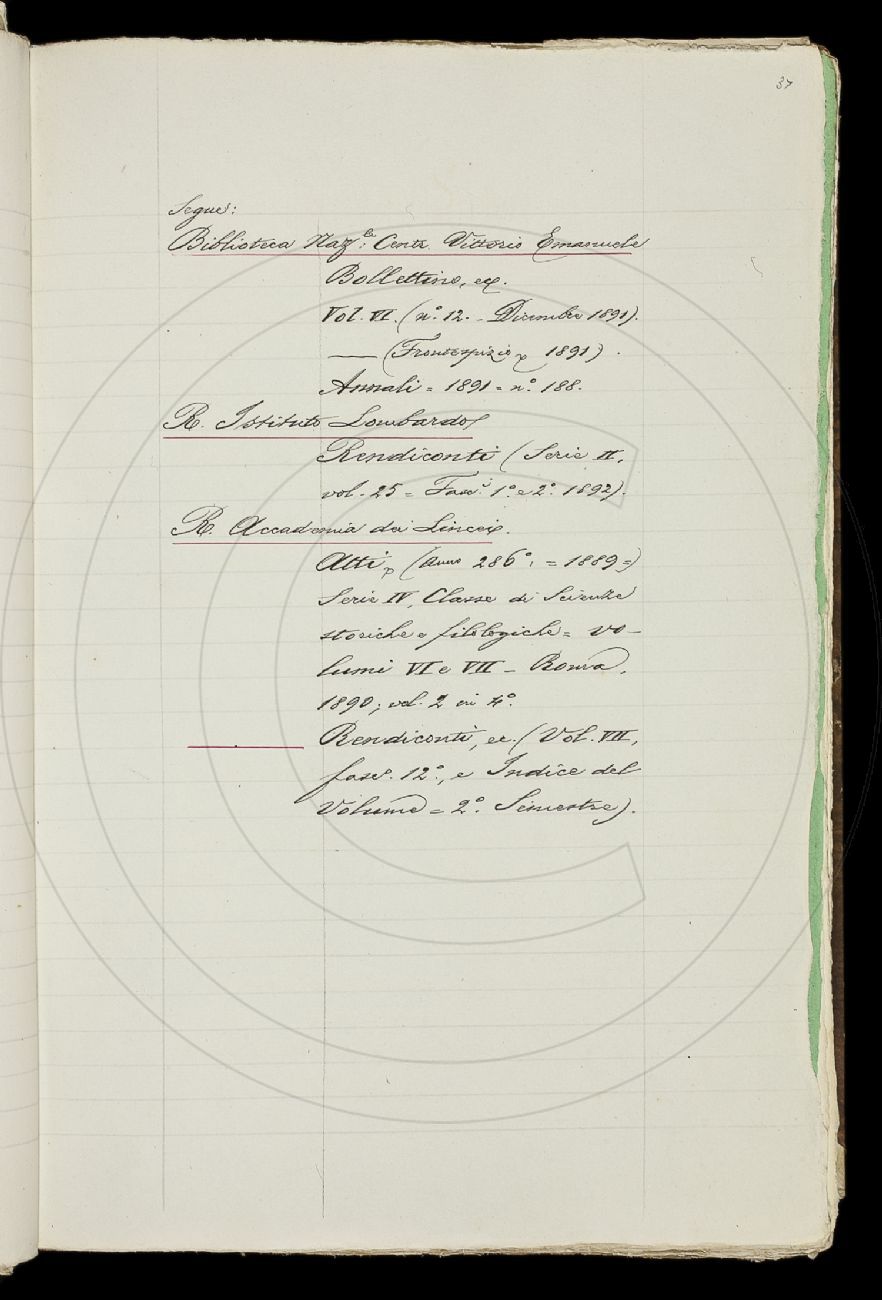 37
Segue:
Biblioteca Naz.le: Centr. Vittorio Emanuele
Bollettino, ec.
Vol. VI. (n.° 12. - Dicembre 1891).
—— (Frontespizio 1891).
Annali = 1891 = n.° 188.
R. Istituto Lombardo
Rendiconti (Serie II,
vol. 25 = Fasc.i 1.° e 2.° 1892).
R. Accademia dei Lincei.
Atti (Anno 286°: = 1889=)
Serie IV, Classe di Scienze
storiche e filologiche = vo-
lumi VI e VII - Roma,
1890; vol. 2 in 4.°
Rendiconti, ec. (Vol. VII,
fasc. 12.°, e Indice del
Volume = 2.° Semestre).